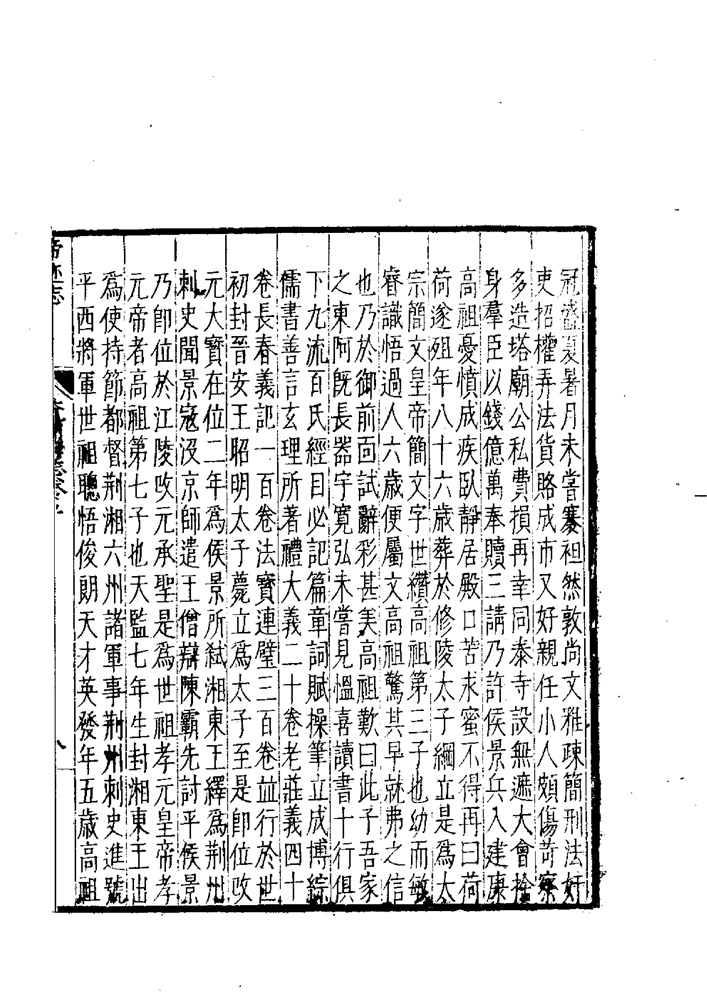 冠盛夏暑月未嘗褰袒然敦尚文雅疎簡刑法奸
吏招權弄法貨賂成市又好親任小人頗傷苛察
多造塔廟公私費損再幸同泰寺設無遮大會捨
身羣臣以錢億萬奉贖三請乃許侯景兵入建康
高祖憂憤成疾臥靜居殿口苦求蜜不得再曰荷
荷遂殂年八十六歲葬於修陵太子綱立是為太
宗簡文皇帝簡文字世纘高祖第三子也幼而敏
睿識悟過人六歲便屬文高祖驚其早就弗之信
也乃於御前面試辭彩甚美高祖歎曰此子吾家
之東阿旣長器宇寬弘未嘗見慍喜讀書十行俱
下九流百氏經目必記篇章詞賦操筆立成博綜
儒書善言玄理所著禮大義二十卷老莊義四十
卷長春義記一百卷法寶連璧三百卷並行於世
初封晉安王昭明太子薨立爲太子至是卽位改
元大寶在位二年爲侯景所弑湘東王繹爲荆州
刺史聞景寇沒京師遣王僧辯陳霸先討平侯景
乃卽位於江陵改元承聖是爲世祖孝元皇帝孝
元帝者高祖第七子也天監七年生封湘東王出
爲使持節都督荆湘六州諸軍事荆州刺史進號
平西將軍世祖聰悟俊朗天才英發年五歲高祖
帝迹志
八